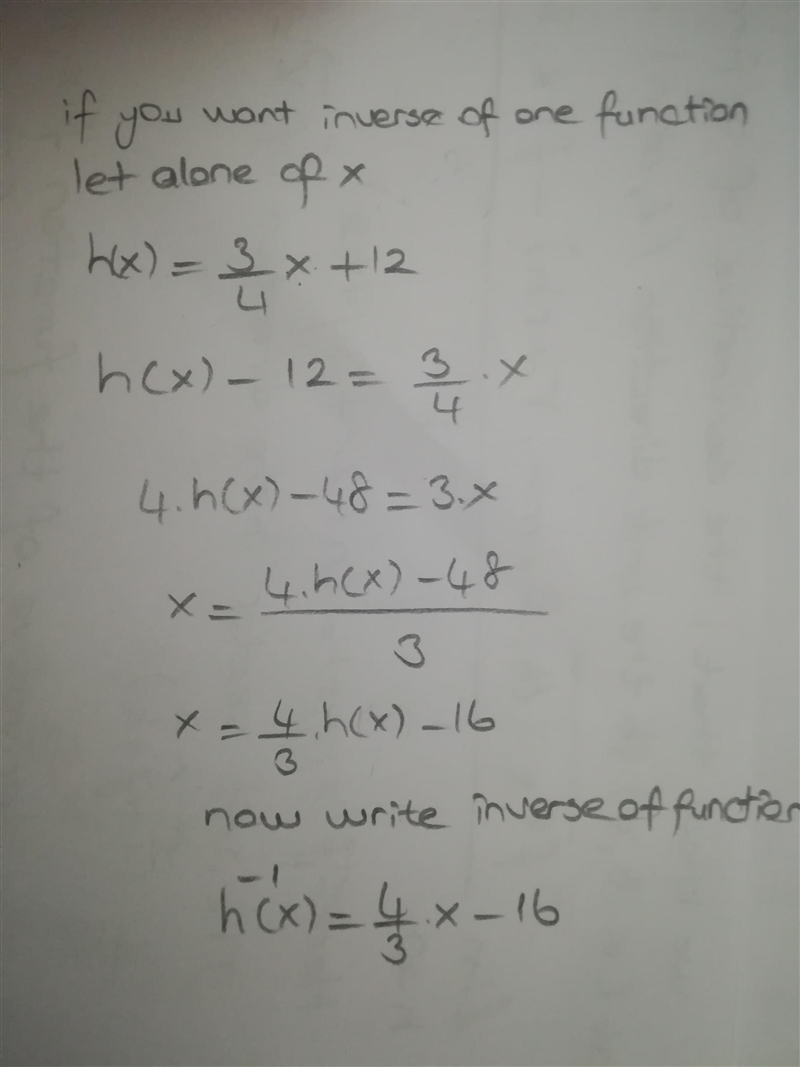 if you want inverse of one function
let alone of x
h(x) = 3/4 x + 12
h(x) - 12 = 3/4 . x
4.h(x) - 48 = 3.x
x = 4.h(x) - 48 / 3
x = 4/3 . h(x) - 16
now write inverse of function
h⁻¹(x) = 4/3 . x - 16